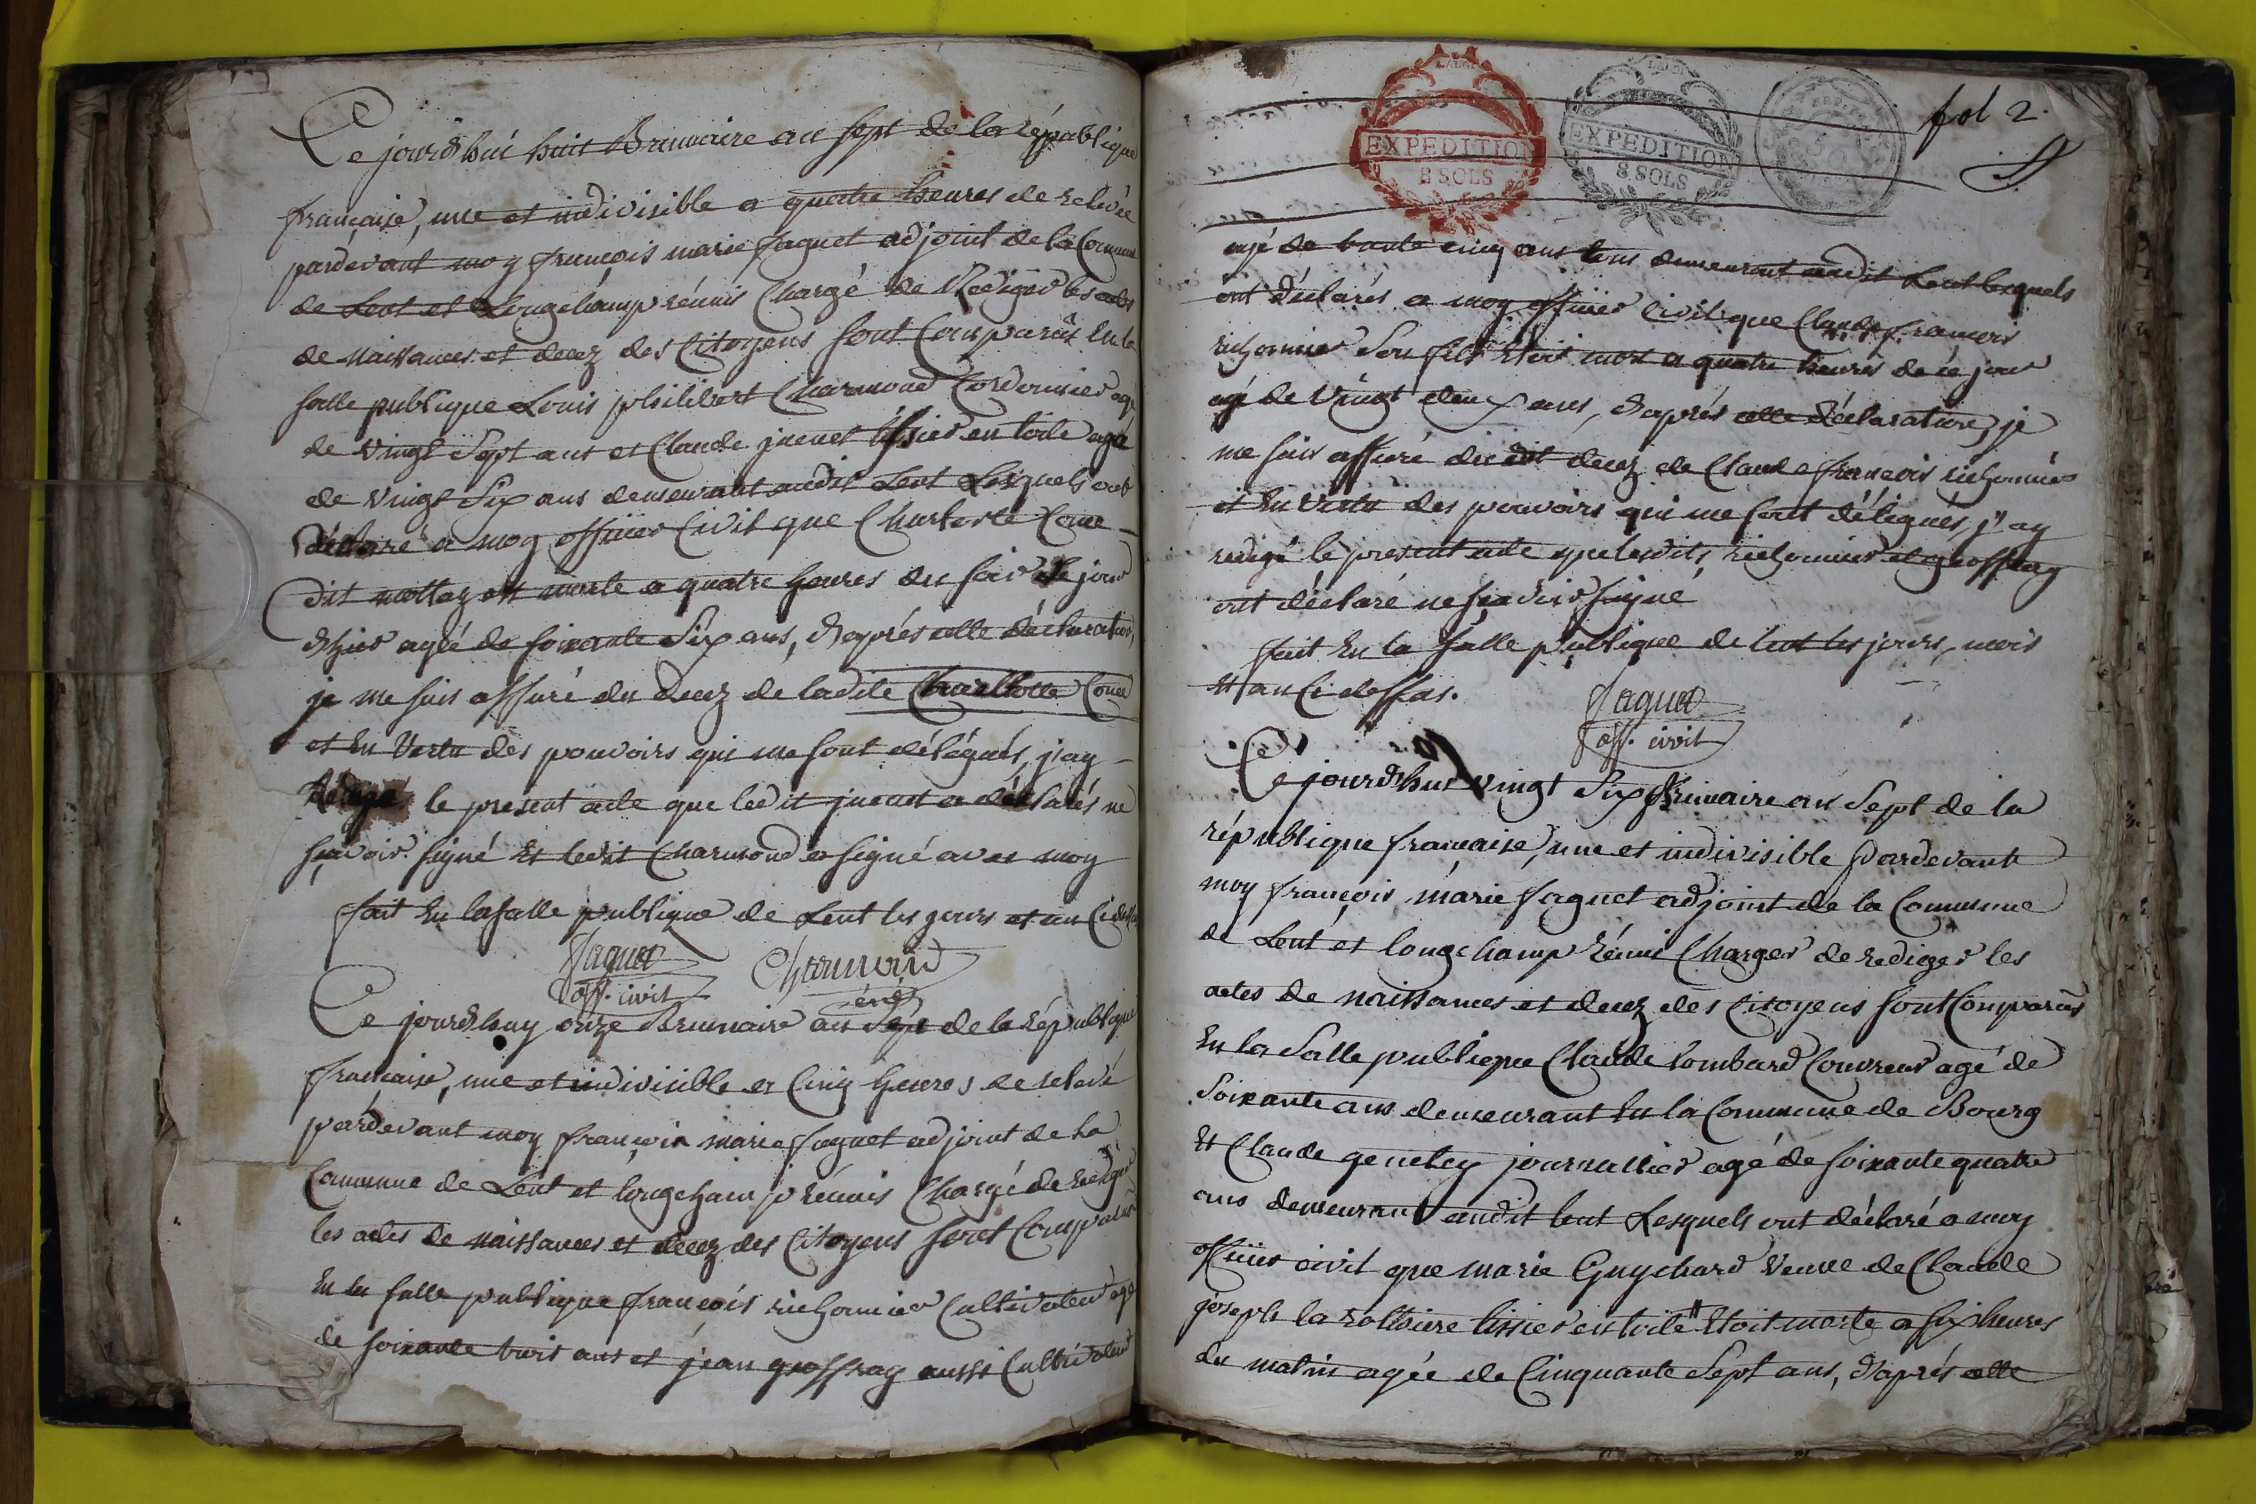 Ce jourdhui huit Brumaire an sept de la république
française, une et indivisible a quatre heures de relevée
pardevant moy françois marie faguet adjoint de la Commune
de Lent et Longchamp réunis Chargé de Rediger les actes
de naissances et decez des Citoyens sont Comparûs En la
salle publique Louis philibert Charmond Cordonnier agé
de vingt Sept ans et Claude juenet tissier en toile agé
de vingt Six ans demeurant audit Lent Lesquels ont
déclaré a moy officier Civil que Charlotte Coue
dit mottay est morte a quatre heures du soir le jour
dhier agée de soixante Six ans, d'après cette déclaration,
je me suis assuré du decez de ladite Charllotte Coue
et En Vertu des pouvoirs qui me sont délégués, j'ay
Rédigé le present acte que ledit juenet a déclarés ne
sçavoir signé Et ledit Charmond a signé avec moy
fait En la salle publique de Lent les jours et an Ci dessus
faguet Charmond
off. civil
Ce jourdhuy onze Brumaire an Sept de la République
française, une et indivisible a Cinq heures de relevé
pardevant moy françois marie faguet adjoint de la
Commune de Lent et longchamp réunis Chargé de rediger
les actes de naissances et decez des Citoyens sont Comparus
En la salle publique françois richonnier Cultivateur agé
de soixante trois ans et jean geoffray aussi Cultivateur
EXPEDITION
8 SOLS
EXPEDITION
8 SOLS
fol 2.
agé de trente cinq ans tous demeurant audit Lent lesquels
ont déclarés a moy officier Civil que Claude françois
richonnier Son fils Etoit mort a quatre heures de ce jour
agé de Vingt deux ans, d'après cette déclaration, je
me suis assuré dudit decez de Claude françois richonnier
et En Vertu des pouvoirs qui me sont délégués, j'ay
redigé le present acte que lesdits richonnier et geoffray
ont déclaré ne sçavoir signé
fait En la salle publique de lent les jours, mois
Et an Ci dessus.
faguet
off. civil
Ce jourdhui vingt Six frimaire an Sept de la
république française, une et indivisible Pardevant
moy françois marie faguet adjoint de la Commune
de Lent et longchamp réuni Charger de rediger les
actes de naissances et decez des Citoyens sont Comparus
En la Salle publique Claude lombard Couvreur agé de
Soixante ans demeurant En la Commune de Bourg
Et Claude genetey journallier agé de soixante quatre
ans demeurant audit lent Lesquels ont déclaré a moy
officier civil que marie Guychard Veuve de Claude
joseph la rolliere tissier en toile Etoit morte a six heures
du matin agée de Cinquante Sept ans, d'après cette